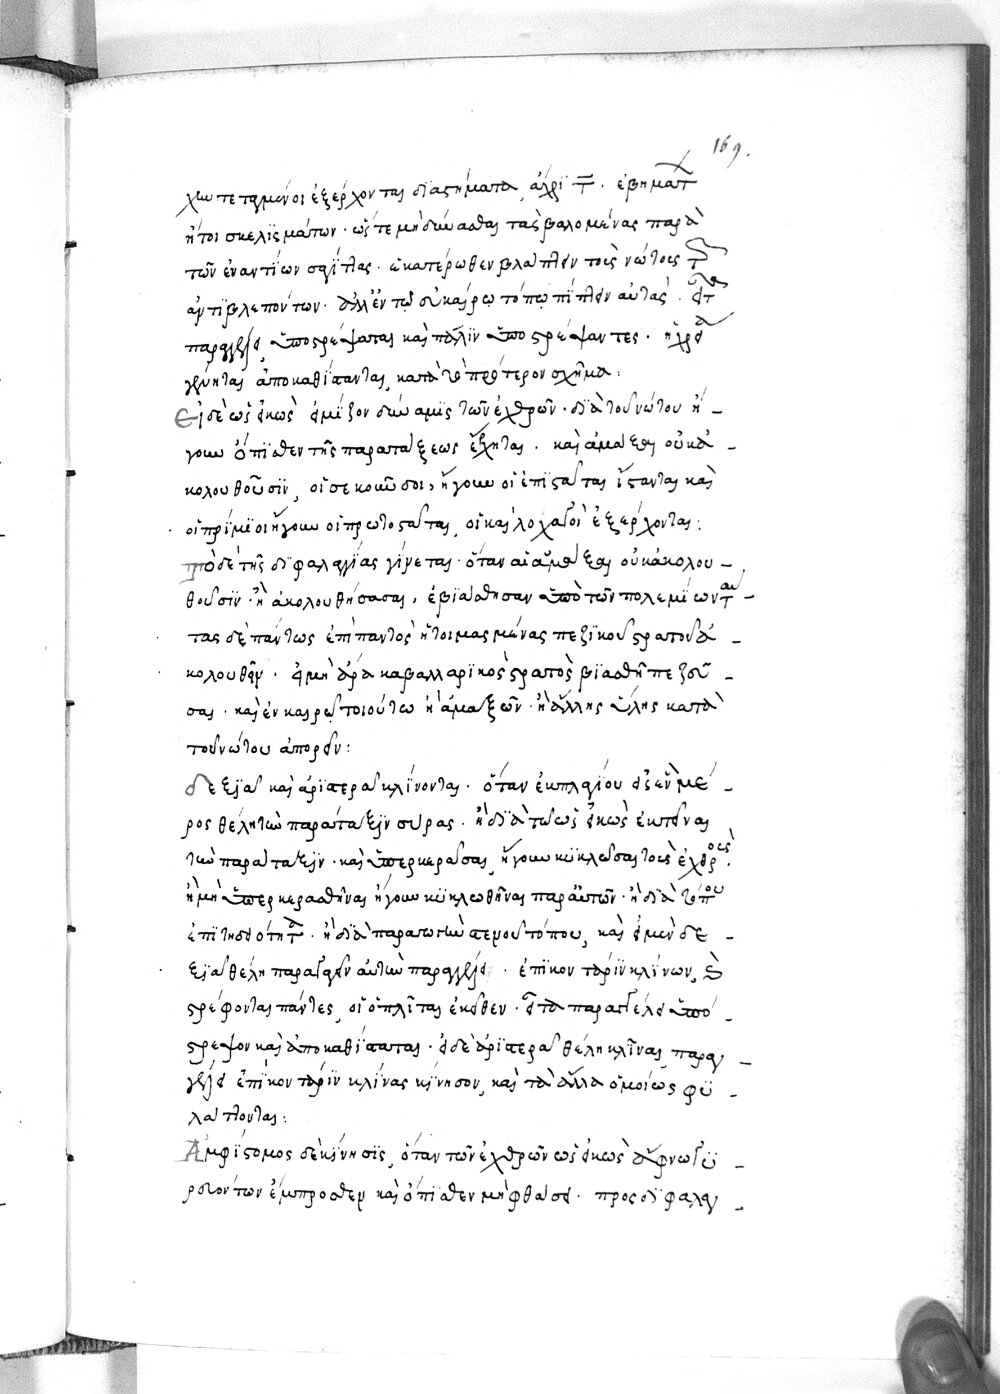 169.
χω τεταγμένοι ἐξέρχονται διαστήματα, ἄχρι τ. ἐ βημάτ
ἤτοι σκελισμάτων· ὥστε μὴ δύνασθαι τὰς βαλομένας παρὰ
τῶν ἐναντίων σαγίττας· ἑκατέρωθεν βλάπτειν τοὺς νώτους τ
ἀντιβλεπόντων· ἀλλ' ἐν τῷ εὐκαίρῳ τόπῳ πίπτειν αὐτάς.
παραγγέλλει, ὑποστρέψατε καὶ πάλιν ὑποστρέψαντες· ἡ χρεία
γένηται ἀποκαθίστανται, κατὰ τὸ πρότερον σχῆμα:
Εἰ δὲ ὡς εἰκὸς ἡ μείζων δύναμις τῶν ἐχθρῶν· διὰ τοῦ νώτου ἤ-
γουν ὄπισθεν τῆς παρατάξεως ἔρχηται. καὶ ἅμαξαι οὐκ ἀ-
κολουθοῦσιν, οἱ σεκοῦνδοι, ἤγουν οἱ ἐπιστάται ἵστανται καὶ
οἱ πρίμοι ἤγουν οἱ πρωτοστάται, οἱ καὶ λοχαγοὶ ἐξέρχονται:
τὸ δὲ τῆς διφαλαγγίας γίνεται· ὅταν αἱ ἅμαξαι οὐκ ἀκολου-
θοῦσιν· ἢ ἀκολουθήσασαι, ἐβιάσθησαν ὑπὸ τῶν πολεμίων
τὰς δὲ πάντως ἐπὶ παντὸς ἡτοιμασμένας πεζικοῦ στρατοῦ ἀ-
κολουθεῖν· εἰ μὴ ἄρα καβαλλαρικὸς στρατὸς βιασθῇ πεζεῦ-
σαι· καὶ ἐν καιρῷ τοιούτῳ ἢ ἁμαξῶν· ἢ ἄλλης ὕλης κατὰ
τοῦ νώτου ἀπορεῖν:
δεξιὰ καὶ ἀριστερὰ κλίνονται· ὅταν ἐκ πλαγίου δεξιὸν μέ-
ρος θέλῃ τὴν παράταξιν σῦραι. ἢ διὰ τὸ ὡς εἰκὸς ἐκτεῖναι
τὴν παράταξιν· καὶ ὑπερκεράσαι, ἤγουν κυκλῶσαι τοὺς ἐχθρούς.
ἢ μὴ ὑπερκερασθῆναι ἤγουν κυκλωθῆναι παρ' αὐτῶν· ἢ διὰ τόπου
ἐπιτηδειότητα· ἢ διὰ παραπομπὴν στενοῦ τόπου, καὶ εἰ μὲν δε-
ξιὰ θέλῃ παραγαγεῖν αὐτὴν παραγγέλλει· ἐπὶ κονταρὶν κλῖνον, καὶ
στρέφονται πάντες, οἱ ὁπλῖται ἐκεῖθεν· εἶτα παραγγέλλει ὑπό-
στρεψον καὶ ἀποκαθίσταται· εἰ δὲ ἀριστερὰ θέλῃ κλῖναι, παραγ-
γέλλει ἐπὶ κονταρὶν κλῖναι κίνησον, καὶ τὰ ἄλλα ὁμοίως φυ-
λάττονται:
Ἀμφίστομος δὲ κίνησις, ὅταν τῶν ἐχθρῶν ὡς εἰκὸς ἄφνω γυ-
ρευόντων ἔμπροσθεν καὶ ὄπισθεν μὴ φθάσει· πρὸς διφαλαγ-